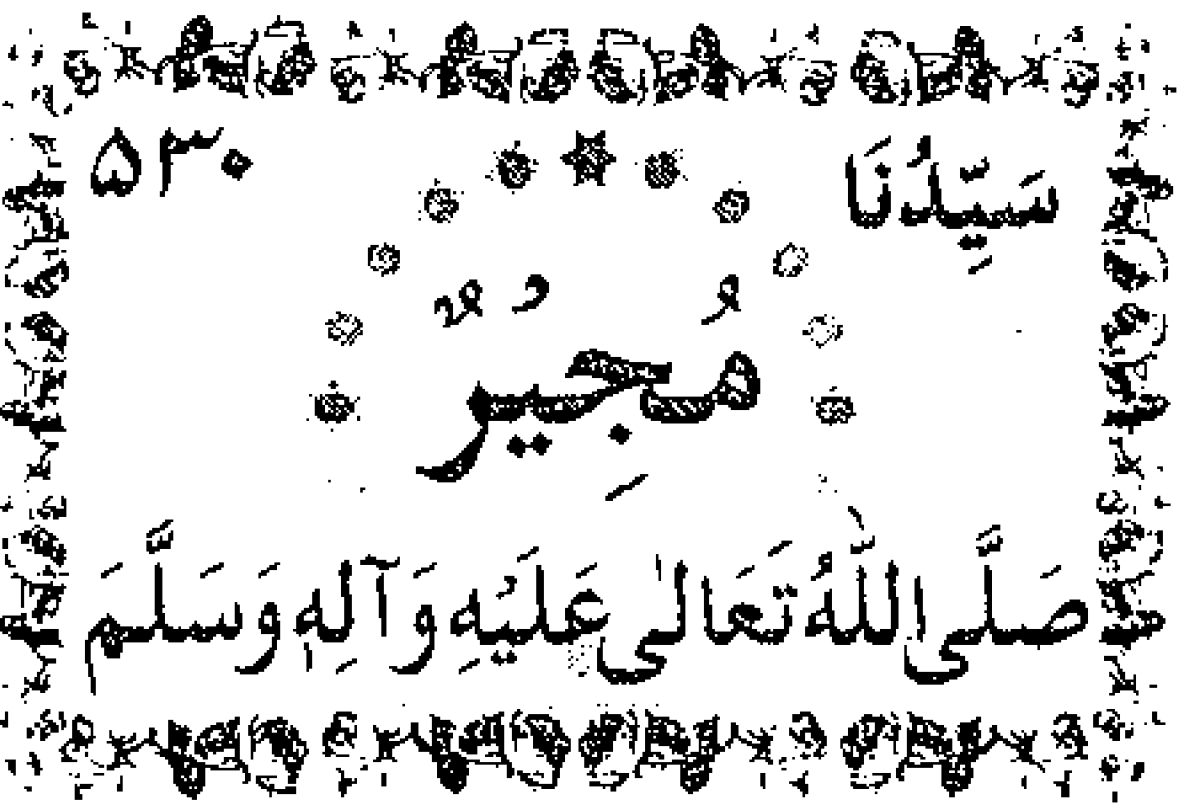 سَيِّدُنَا ۵۳۰
مُجِيْرٌ
صَلَّى اللّٰهُ تَعَالىٰ عَلَيْهِ وَآلِهٖ وَسَلَّمَ